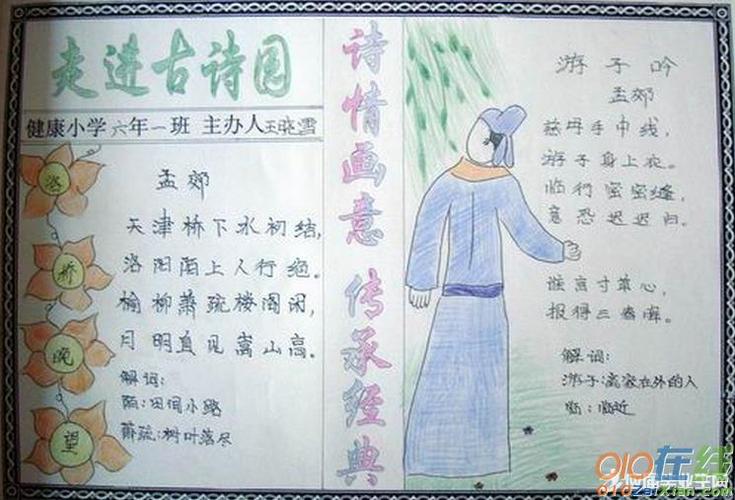 走进古诗园
健康小学六年一班 主办人王晓雪
洛
桥
晚
望
孟郊
天津桥下水初结,
洛阳陌上人行绝。
榆柳萧疏楼阁闲,
月明直见嵩山高。
解词:
陌:田间小路
萧疏:树叶落尽
诗情画意 传承经典
游子吟
孟郊
慈母手中线,
游子身上衣。
临行密密缝,
意恐迟迟归。
谁言寸草心,
报得三春晖。
解词:
游子:离家在外的人
临:临近
010在线